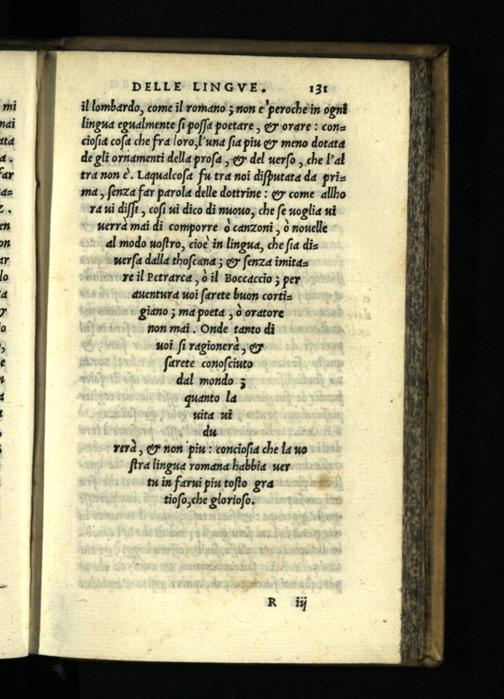 DELLE LINGVE. 131
il lombardo, come il romano; non e' peroche in ogni
lingua egualmente si possa poetare, & orare: con=
ciosia cosa che fra loro, l'una sia piu & meno dotata
de gli ornamenti della prosa, & del verso, che l'al
tra non è. Laqualcosa fu tra noi disputata da pri=
ma, senza far parola delle dottrine: & come allho
ra vi dissi, cosi vi dico di nuovo, che se voglia vi
verrà mai di comporre ò canzoni, ò novelle
al modo vostro, cioè in lingua, che sia di=
versa dalla thoscana; & senza imita=
re il Petrarca, ò il Boccaccio; per
aventura voi sarete buon corti=
giano; ma poeta, ò oratore
non mai. Onde tanto di
voi si ragionerà, &
sarete conosciuto
dal mondo;
quanto la
vita vi
du
rerà, & non piu: conciosia che la vo
stra lingua romana habbia ver
tu in farvi piu tosto gra
tioso, che glorioso.
R iij
mi
mai
ata
a.
far
a=
z.
en
on
ar
lo
ia
&
io
o,
le